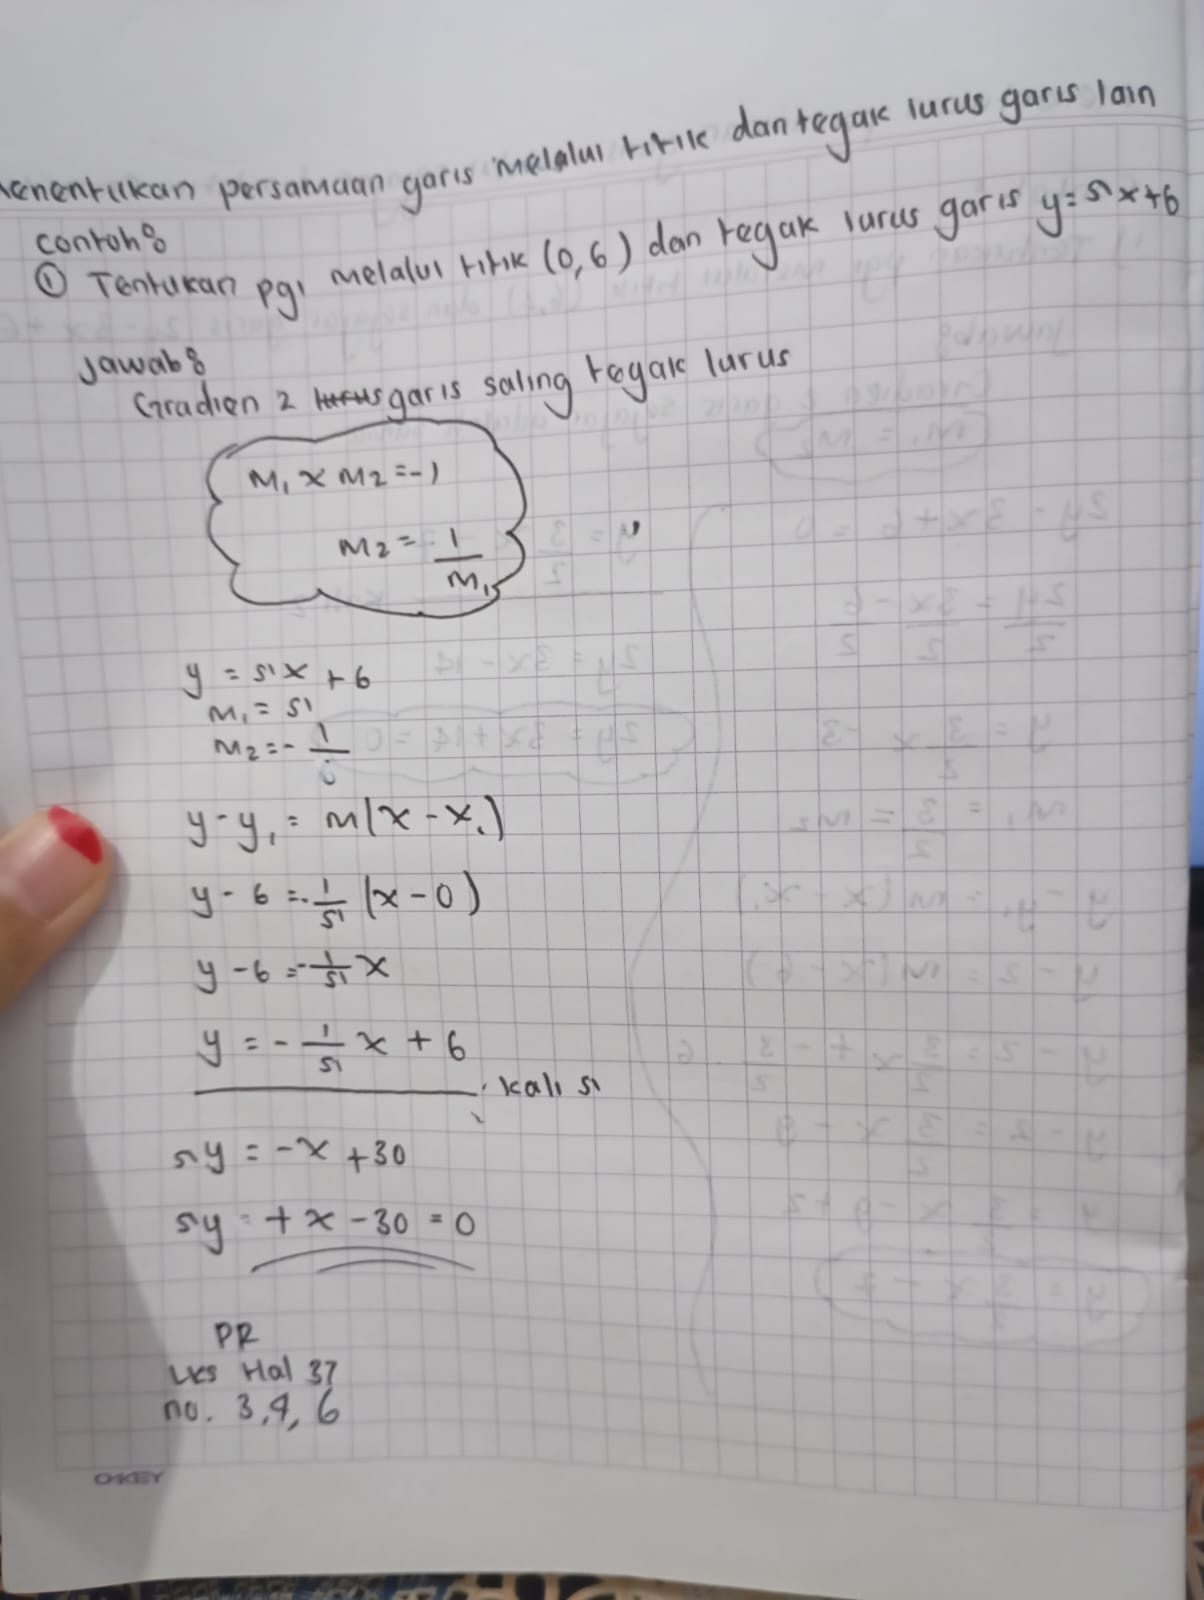 Menentukan persamaan garis melalui titik dan tegak lurus garis lain
Contoh:
① Tentukan pgl melalui titik (0,6) dan tegak lurus garis y = 5x+6
Jawab:
Gradien 2 garis saling tegak lurus
m₁ x m₂ = -1
m₂ = 1/m₁
y = 5x + 6
m₁ = 5
m₂ = - 1/5
y - y₁ = m(x - x₁)
y - 6 = - 1/5 (x - 0)
y - 6 = - 1/5 x
y = - 1/5 x + 6
kali 5
5y = -x + 30
5y = + x - 30 = 0
PR
LKS Hal 37
no. 3,4, 6
OKEY